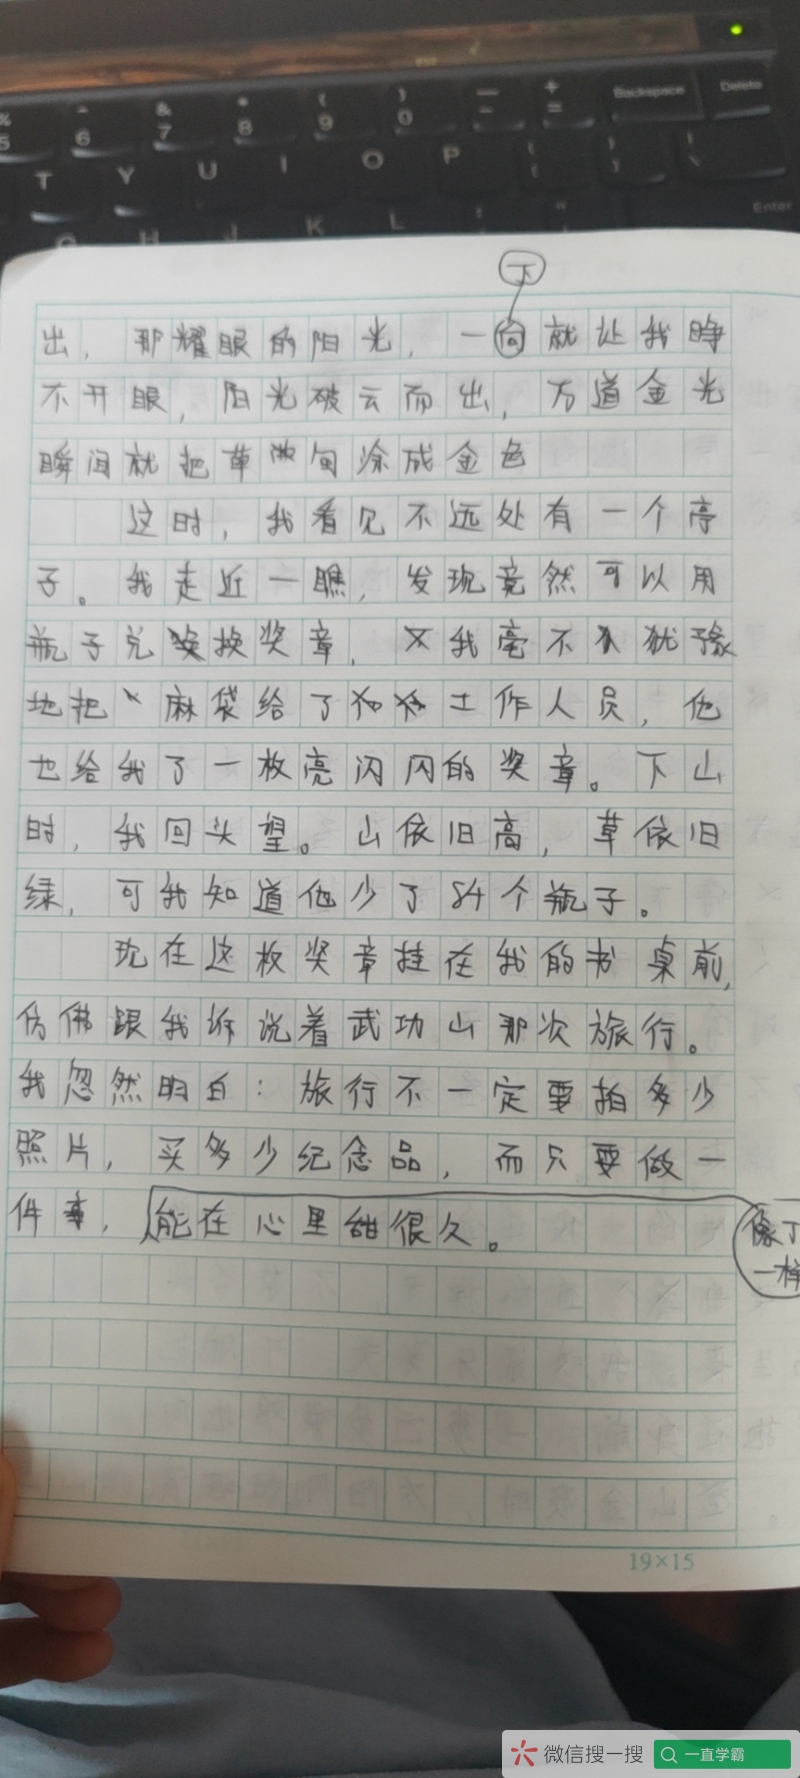 %
5
^
6
&
7
*
8
(
9
)
0
—
-
+
=
Backspace
Delete
T
Y
U
I
O
P
Enter
G
H
J
K
L
下
出，那耀眼的阳光，一向就让我睁
不开眼，阳光破云而出，万道金光
瞬间就把草甸涂成金色
这时，我看见不远处有一个亭
子。我走近一瞧，发现竟然可以用
瓶子兑换奖章，我毫不犹豫
地把麻袋给了工作人员，他
也给我了一枚亮闪闪的奖章。下山
时，我回头望。山依旧高，草依旧
绿，可我知道他少了84个瓶子。
现在这枚奖章挂在我的书桌前，
仿佛跟我诉说着武功山那次旅行。
我忽然明白：旅行不一定要拍多少
照片，买多少纪念品，而只要做一
件事，能在心里甜很久。
像了
一样
19×15
微信搜一搜
一直学霸